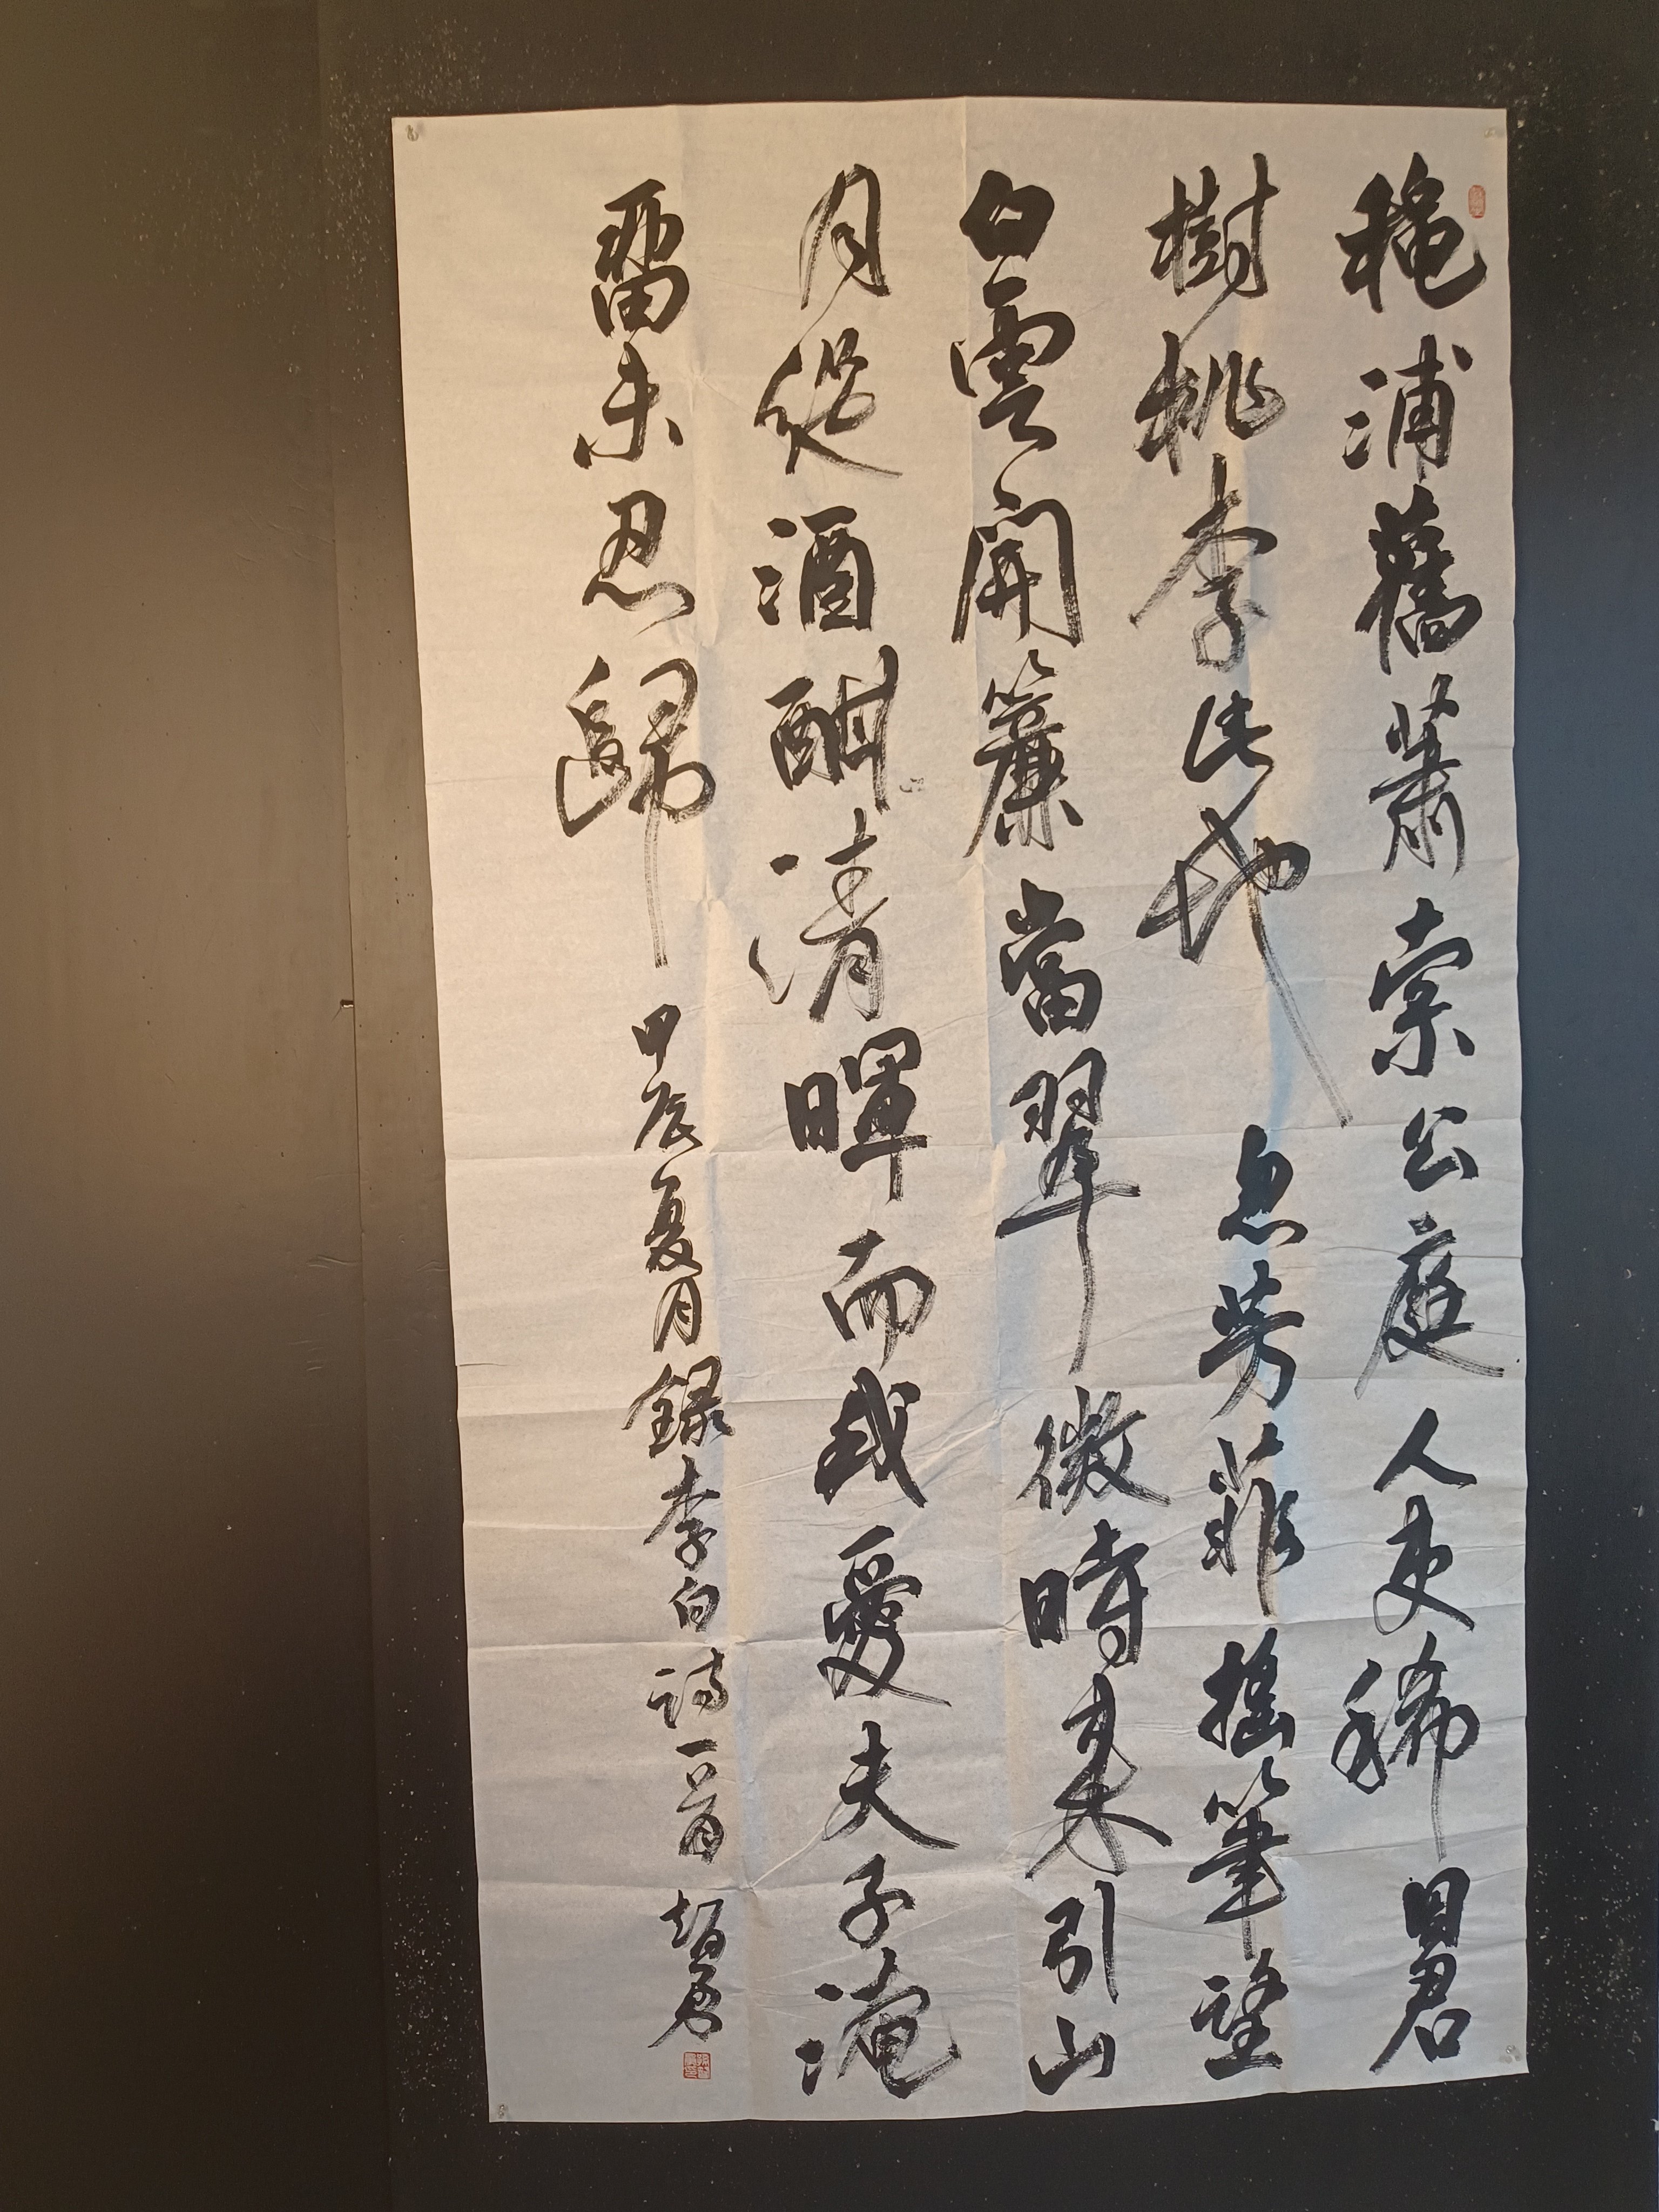 穐浦舊蕭索公庭人吏稀因君
樹桃李此地忽芳菲搖筆望
白雲開簾當翠微時來引山
月從酒酣清暉而我愛夫子淹
留未忍歸 甲辰夏月錄李白詩一首